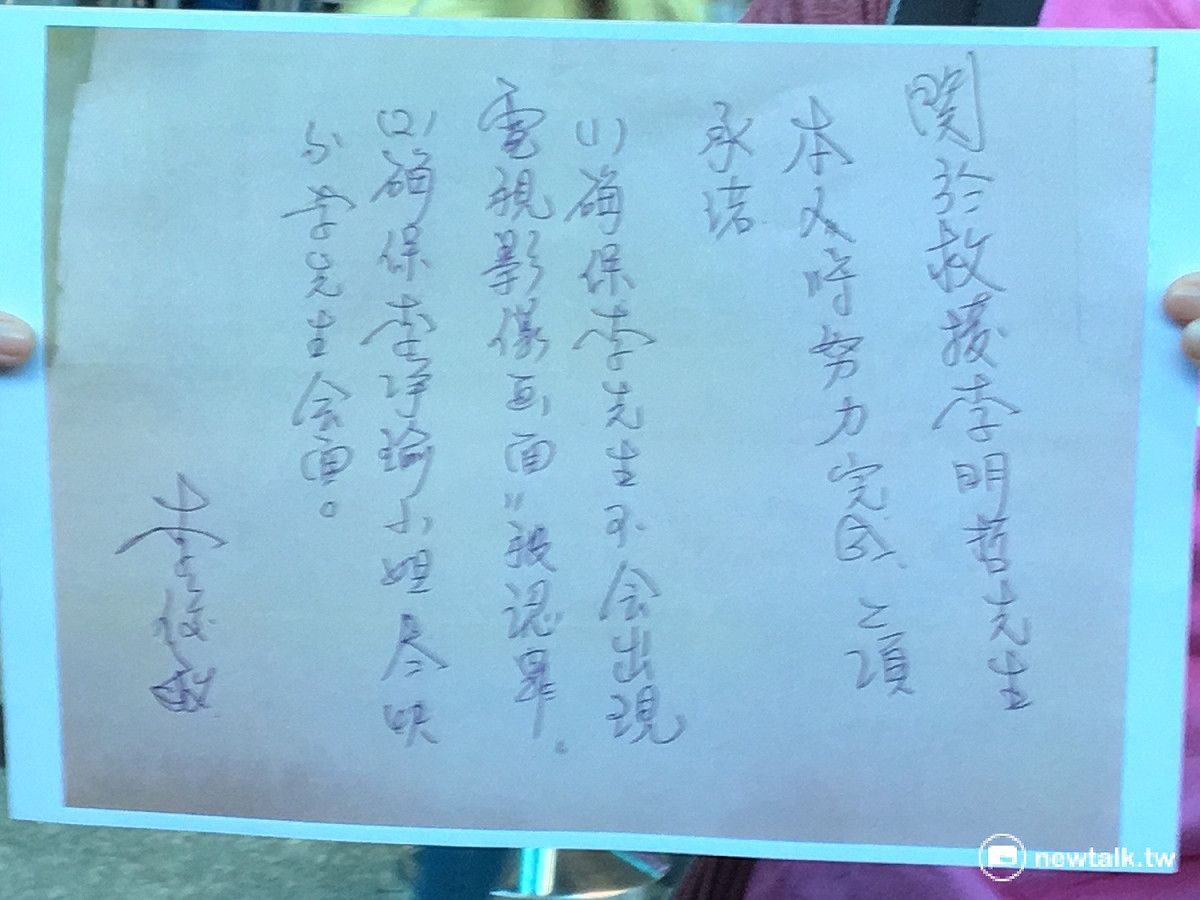 関於救援李明哲先生
本人時努力完成二項
承诺
(1)确保李先生不会出現
電視影像画面"被認罪。
(2)确保李淨瑜小姐尽快
与李先生会面。
李俊敏
newtalk.tw